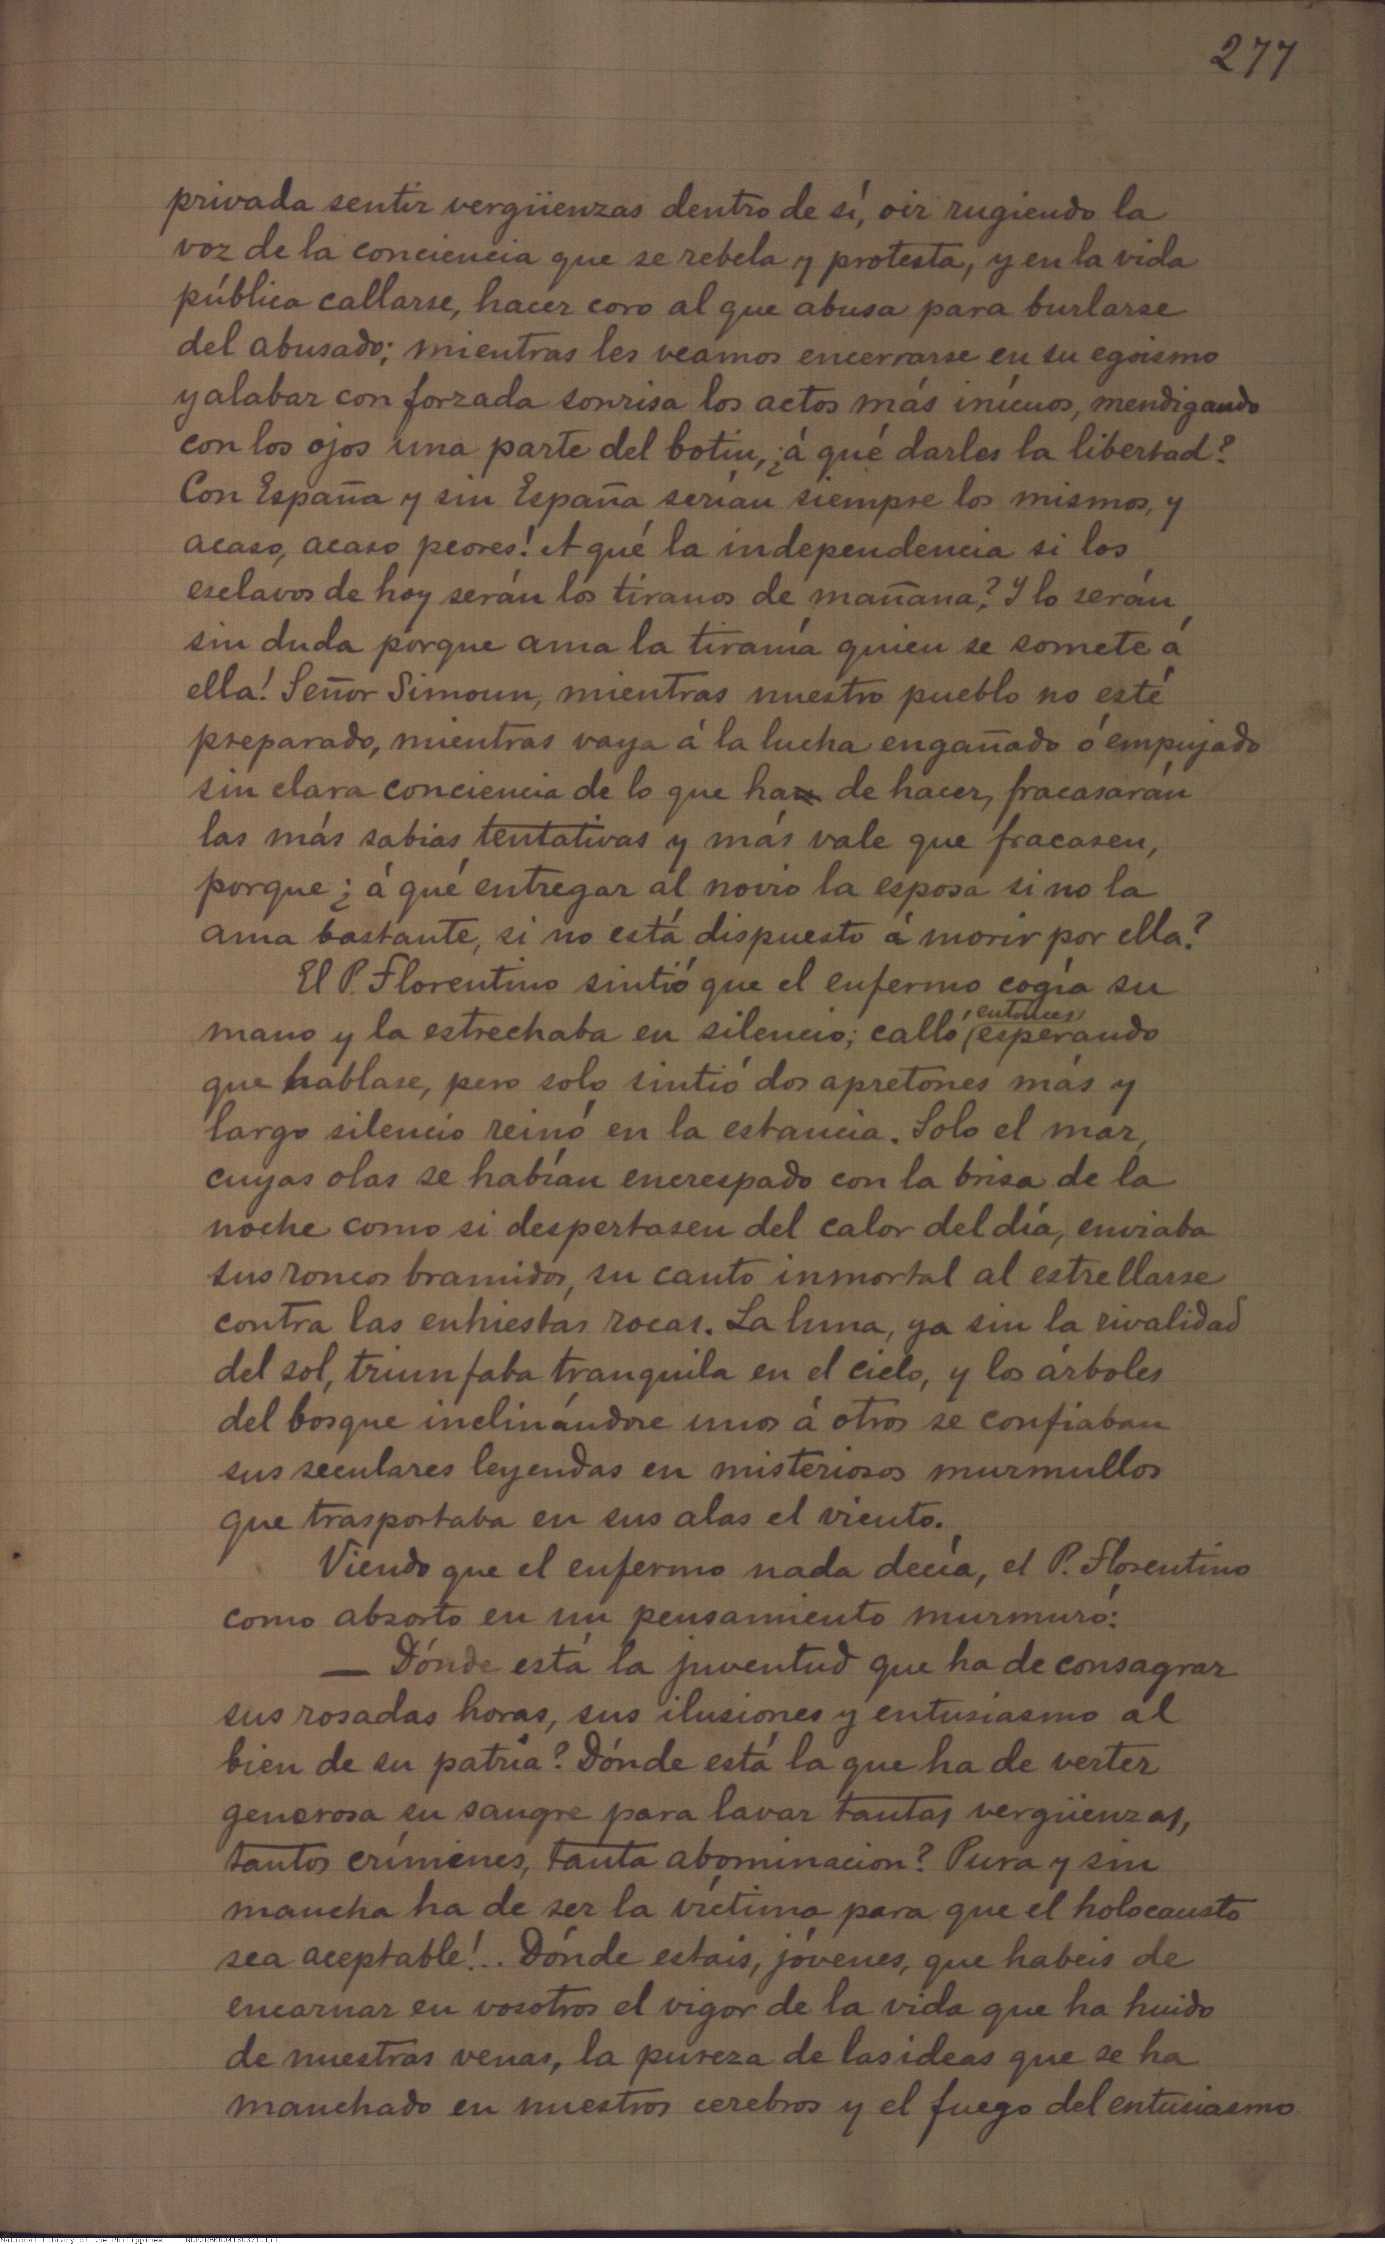 277
privada sentir vergüenzas dentro de sí, oir rugiendo la
voz de la conciencia que se rebela y protesta, y en la vida
pública callarse, hacer coro al que abusa para burlarse
del abusado; mientras les veamos encerrarse en su egoismo
y alabar con forzada sonrisa los actos más inícuos, mendigando
con los ojos una parte del botin, ¿á qué darles la libertad?
Con España y sin España serían siempre los mismos, y
acaso, acaso peores! A qué la independencia si los
esclavos de hoy serán los tiranos de mañana? Y lo serán
sin duda porque ama la tiranía quien se somete á
ella! Señor Simoun, mientras nuestro pueblo no esté
preparado, mientras vaya á la lucha engañado ó empujado
sin clara conciencia de lo que ha de hacer, fracasarán
las más sabias tentativas y más vale que fracasen,
porque ¿á qué entregar al novio la esposa si no la
ama bastante, si no está dispuesto á morir por ella?
El P. Florentino sintió que el enfermo cogía su
mano y la estrechaba en silencio; calló entonces esperando
que hablase, pero solo sintió dos apretones más y
largo silencio reinó en la estancia. Solo el mar,
cuyas olas se habían encrespado con la brisa de la
noche como si despertasen del calor del día, enviaba
sus roncos bramidos, su canto inmortal al estrellarse
contra las enhiestas rocas. La luna, ya sin la rivalidad
del sol, triunfaba tranquila en el cielo, y los árboles
del bosque inclinándose unos á otros se confiaban
sus seculares leyendas en misteriosos murmullos
que trasportaba en sus alas el viento.
Viendo que el enfermo nada decía, el P. Florentino
como absorto en un pensamiento murmuró:
— Dónde está la juventud que ha de consagrar
sus rosadas horas, sus ilusiones y entusiasmo al
bien de su patria? Dónde está la que ha de verter
generosa su sangre para lavar tantas vergüenzas,
tantos crímenes, tanta abominacion? Pura y sin
mancha ha de ser la víctima para que el holocausto
sea aceptable!.. Dónde estais, jóvenes, que habeis de
encarnar en vosotros el vigor de la vida que ha huido
de nuestras venas, la pureza de las ideas que se ha
manchado en nuestros cerebros y el fuego del entusiasmo
National Library of the Philippines